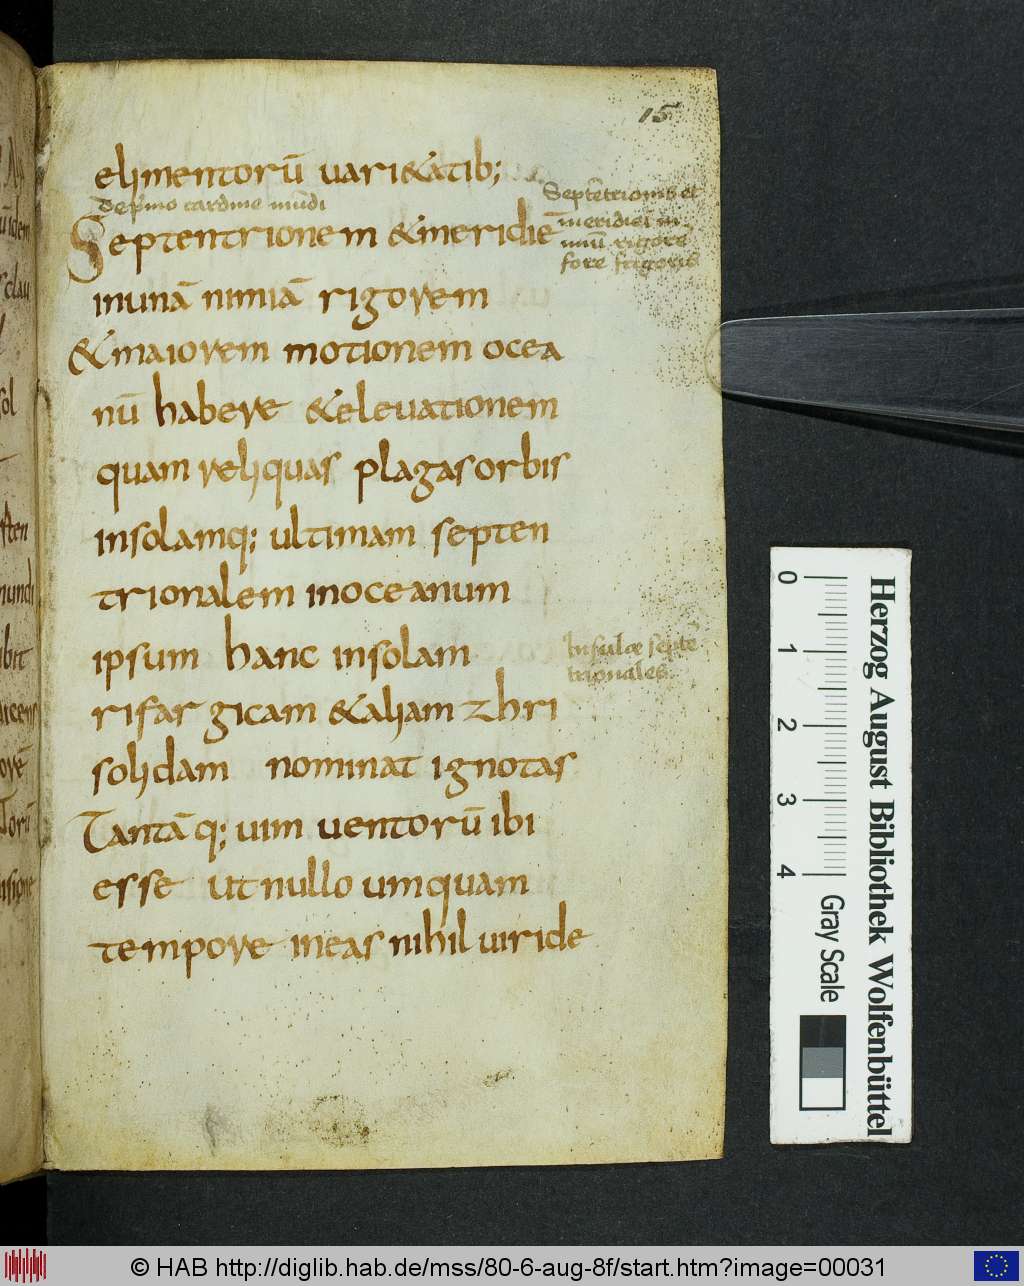 15
elimentorū uari&atib;
De primo cardine mūdi
Septentrionem &meridiē
Septētrionis et
meridiei in
fore frigoris
inunā nimiā rigorem
&maiorem motionem ocea
nū habere &eleuationem
quam reliquas plagas orbis
insolamq; ultimam septen
trionalem inoceanum
ipsum hanc insolam
Insulæ septē
trionales.
rifargicam &aliam zhri
solidam nominat ignotas
Tantāq; uim uentorū ibi
esse ut nullo umquam
tempore ineas nihil uiride
0 1 2 3 4
Gray Scale
Herzog August Bibliothek Wolfenbüttel
© HAB http://diglib.hab.de/mss/80-6-aug-8f/start.htm?image=00031